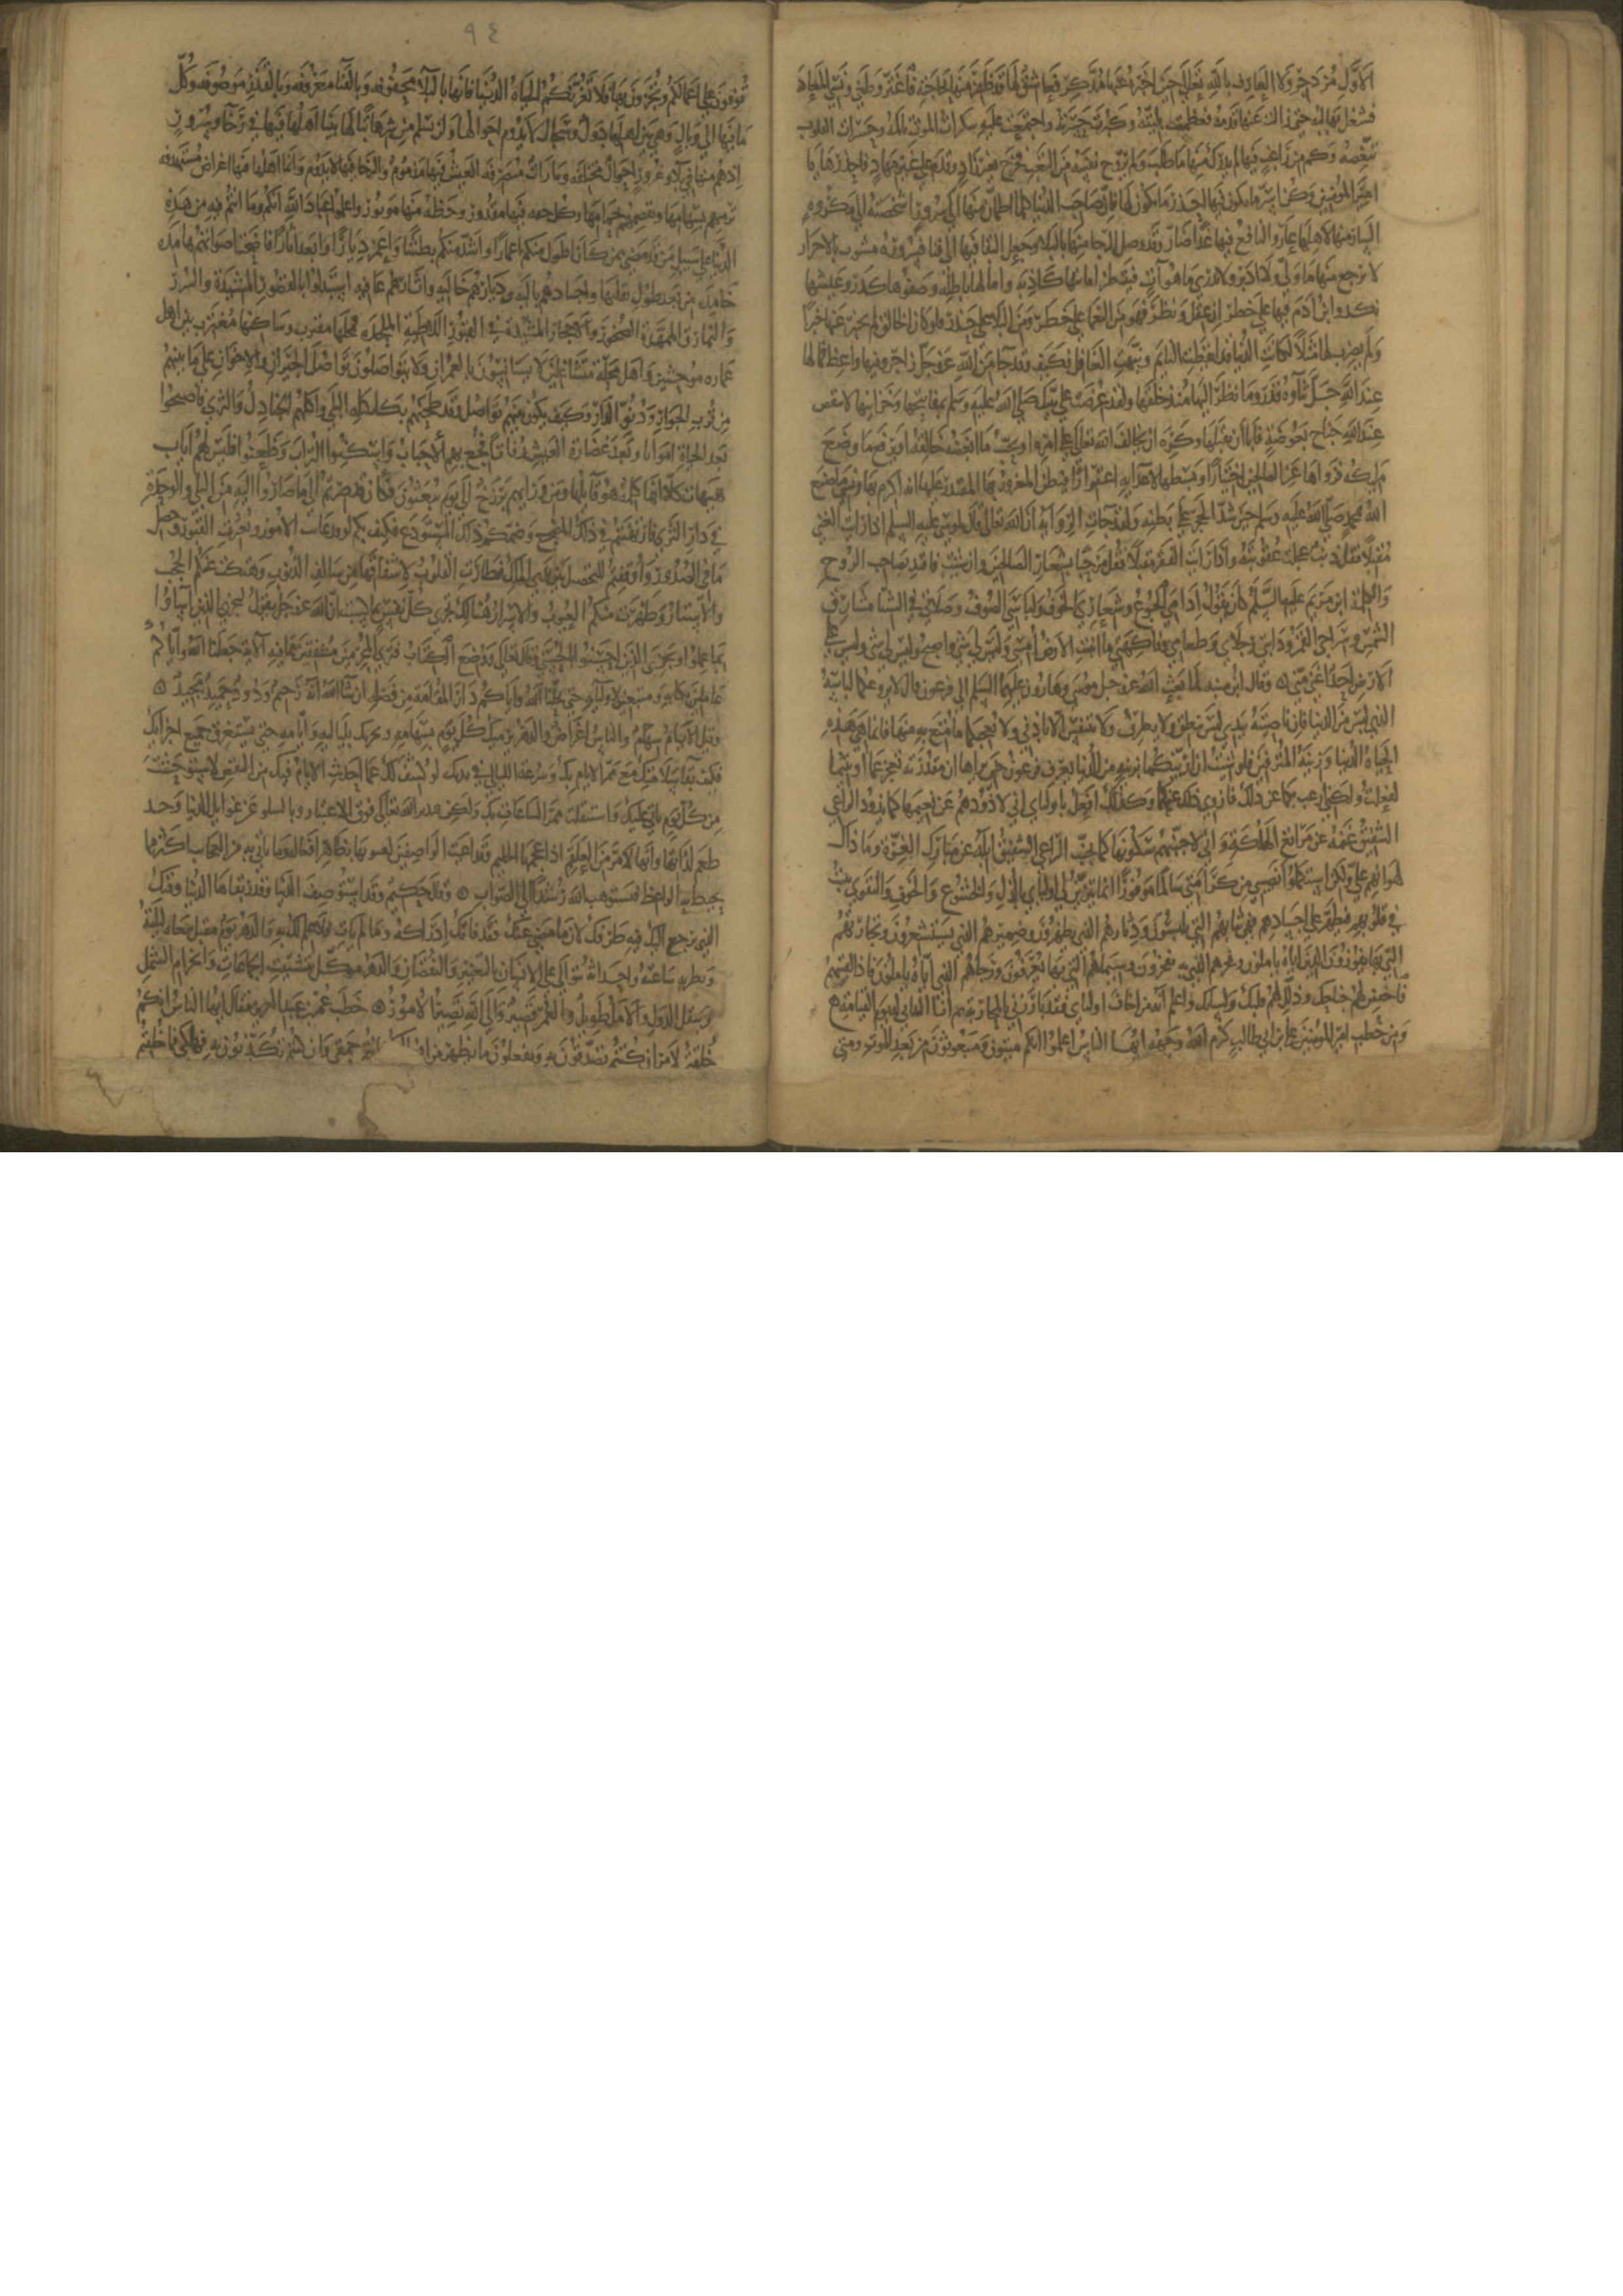 الاول مزدجر ولا العارف بالله تعالى حين اخبره عنها مدكر فعاشق لها قد ظفر منها بحاجته فاغتر وطغى ونسي المعاد
فشغل بها لبه حتى زالت عنها قدمه فعظمت ندامته وكثرت حسرته واجتمعت عليه سكرات الموت بالمه وحسرات الفوت
بغصته وكم من راغب فيها لم يدرك منها ما طلب ولم يروح نفسه من التعب فخرج بغير زاد وقدم على غير مهاد فاحذرها يا
امير المؤمنين وكن اسر ما تكون فيها احذر ما تكون لها فان صاحب الدنيا كلما اطمأن منها الى سرور اشخصته الى مكروه
السار منها لاهلها غار والنافع فيها غدا ضار وقد وصل الرخا منها بالبلا وجعل البقا فيها الى فنا فسروره مشوب بالاحزان
لا يرجع منها ما ولى وادبر ولا يدرى ما هو آت فينتظر امانيها كاذبه وامالها باطله وصفوها كدر وعيشها
نكد وابن آدم فيها على خطر ان عقل ونظر فهو من النعما على خطر ومن البلا على حذر فلو كان الخالق لم يخبر عنها خبرا
ولم يضرب لها مثلا لكانت الدنيا قد ايقظت النايم ونبهت الغافل فكيف وقد جا من الله عز وجل زاجر وفيها واعظ فما لها
عند الله جل ثناوه قدر وما نظر اليها منذ خلقها ولقد عرضت على نبيك صلى الله عليه وسلم بمفاتيحها وخزاينها لا ينقص
عند الله جناح بعوضة فابا ان يقبلها وكره ان يخالف الله تعالى على امره او يحب ما ابغضه خالقه او يرفع ما وضع
مليكه فزواها عن الصالحين اختيارا وبسطها لاعدايه اغترارا فيظن المغرور بها المقتدر عليها انه اكرم بها ونسي ما صنع
الله بمحمد صلى الله عليه وسلم حين شد الحجر على بطنه ولقد جات الرواية ان الله تعالى قال لموسى عليه السلم اذا رايت الغنى
مقبلا فقل ذنب عجلت عقوبته واذا رايت الفقر مقبلا فقل مرحبا بشعار الصالحين وان شيت فاقتد بصاحب الروح
والكلمة ابن مريم عليه السلم كان يقول ادامي الجوع وشعاري الخوف ولباسي الصوف وصلاتي في الشتا مشارق
الشمس وسراجي القمر ودابتي رجلاي وطعامي وفاكهتي ما انبتت الارض امسي وليس لي شي واصبح وليس لي شي وليس على
الارض احد اغنى مني ۞ وقال ابن منبه لما بعث الله عز وجل موسى وهارون عليهما السلم الى فرعون قال لا يروعكما لباسه
الذي لبس من الدنيا فان ناصيته بيدي ليس ينطق ولا يطرف ولا يتنفس الا باذني ولا يعجبكما ما متع به منها فانما هي زهرة
الحياة الدنيا وزينة المترفين فلو شيت ان ازينكما بزينه من الدنيا يعرف فرعون حين يراها ان مقدرته تعجز عما اوتيتما
لفعلت ولكني ارغب بكما عن ذلك فازوي ذلك عنكما وكذلك افعل باوليايي اني لاذودهم عن نعيمها كما يذود الراعي
الشفيق غنمه عن مراتع الهلكة واني لاجنبهم سكونها كما يجنب الراعي الشفيق ابله عن مبارك الغرة وما ذاك
لهوانهم علي ولكن ليستكملوا نصيبهم من كرامتي سالما موفورا انما يتزين لي اوليايي بالذل والخشوع والخوف والتقوى يثبت
في قلوبهم فيظهر على اجسادهم فهي ثيابهم التي يلبسون ودثارهم الذي يظهرون وضميرهم الذي يستشعرون ونجاتهم
التي بها يفوزون ورجاؤهم الذي اياه ياملون ومجدهم الذي به يفخرون وسيماهم التي بها يعرفون فاذا لقيتهم
فاخفض لهم جناحك وذلل لهم قلبك ولسانك واعلم انه من اخاف لي وليا فقد بارزني بالمحاربة ثم انا الثاير له يوم القيامه ۞
ومن خطب امير المؤمنين علي بن ابي طالب كرم الله وجهه ايها الناس اعلموا انكم ميتون ومبعوثون من بعد الموت و
٩٤
موقوفون على اعمالكم ومجزون بها فلا تغرنكم الحياة الدنيا فانها بالبلا محفوفة وبالفنا معروفه وبالغدر موصوفه وكل
ما فيها الى زوال وهي بين اهلها دول وسجال لا يدوم احوالها ولن يسلم من شرها نزالها بينا اهلها منها في رخا وسرور
اذا هم منها في بلا وغرور احوال مختلفه وتارات متصرفه العيش فيها مذموم والرخا فيها لا يدوم وانما اهلها فيها اغراض مستهدفه
ترميهم بسهامها وتقصمهم بحمامها وكل حتفه فيها مقدور وحظه منها موفور واعلموا عباد الله انكم وما انتم فيه من هذه
الدنيا على سبيل من قد مضى ممن كان اطول منكم اعمارا واشد منكم بطشا واعمر ديارا وابعد آثارا فاصبحت اصواتهم هامدة
خامدة من بعد طول تقلبها واجسادهم بالية وديارهم خالية وآثارهم عافيه استبدلوا بالقصور المشيدة والسرر
والنمارق الممهدة الصخور والاحجار المسندة في القبور اللاطية الملحدة محلها مقترب وساكنها مغترب بين اهل
عمارة موحشين واهل محلة متشاغلين لا يستانسون بالعمران ولا يتواصلون تواصل الجيران والاخوان على ما بينهم
من قرب الجوار ودنو الدار وكيف يكون بينهم تواصل وقد طحنهم بكلكله البلى واكلتهم الجنادل والثرى فاصبحوا
بعد الحياة امواتا وبعد غضارة العيش رفاتا فجع بهم الاحباب وسكنوا التراب وظعنوا فليس لهم اياب
هيهات كلا انها كلمة هو قايلها ومن ورايهم برزخ الى يوم يبعثون فكان قد صرتم الى ما صاروا اليه من البلى والوحدة
في دار الثرى وارتهنتم في ذلك المضجع وضمكم ذلك المستودع فكيف بكم لو عاينتم الامور وبعثرت القبور وحصل
ما في الصدور واوقفتم للتحصيل بين يدي الملك الجليل فطارت القلوب لاشفاقها من سالف الذنوب وهتكت عنكم الحجب
والاستار وظهرت منكم العيوب والاسرار هنالك تجزى كل نفس بما كسبت ان الله عز وجل يقول ليجزي الذين اساؤا
بما عملوا ويجزي الذين احسنوا بالحسنى وقال تعالى ووضع الكتاب فترى المجرمين مشفقين مما فيه الاية جعلنا الله واياكم
عاملين بكتابه ومتبعين لاوليايه حتى يحلنا الله واياكم دار المقامة من فضله ان شا الله انه رحيم ودود حميد مجيد ۞
وقيل الايام سهام والناس اغراض والدهر يرميك كل يوم بسهامه ويخترمك بلياليه وايامه حتى يستغرق جميع اجزايك
فكيف بقا سلامتك مع ممر الايام بك وسرعة الليالي في بدنك لو كشف لك عما احدثت الايام فيك من النقص لاستوحشت
من كل يوم ياتي عليك واستثقلت ممر الساعات بك ولكن تدبير الله تعالى فوق الاعتبار وبالسلو عن غوايل الدنيا وجد
طعم لذاتها وانها لامر من العلقم اذا عجمها الحكيم وقد اعيت الواصف لعيوبها بظاهر افعالها وما تاتي به من العجايب اكثر مما
يحيط به الواعظ فنستوهب الله رشدا الى الصواب ۞ وقال حكيم وقد استوصف الدنيا وقدر بقايها الدنيا وقتك
الذي يرجع اليك فيه طرفك لان ما مضى عنك فقد فاتك ادراكه وما لم يات فلا علم لك به والدهر يوم مقبل تنعاه ليلته
وتطويه ساعته واحداثه تتوالى على الانسان بالتغيير والنقصان والدهر موكل بتشتيت الجماعات وانخرام الشمل
وتنقل الدول والامل طويل والعمر قصير والى الله تصير الامور ۞ خطب عمر بن عبد العزيز فقال ايها الناس انكم
خلقتم لامر ان كنتم تصدقون به وتفعلون ما تظهر فانكم حمقى وان كنتم تكذبون به فهلكى فما خلقتم